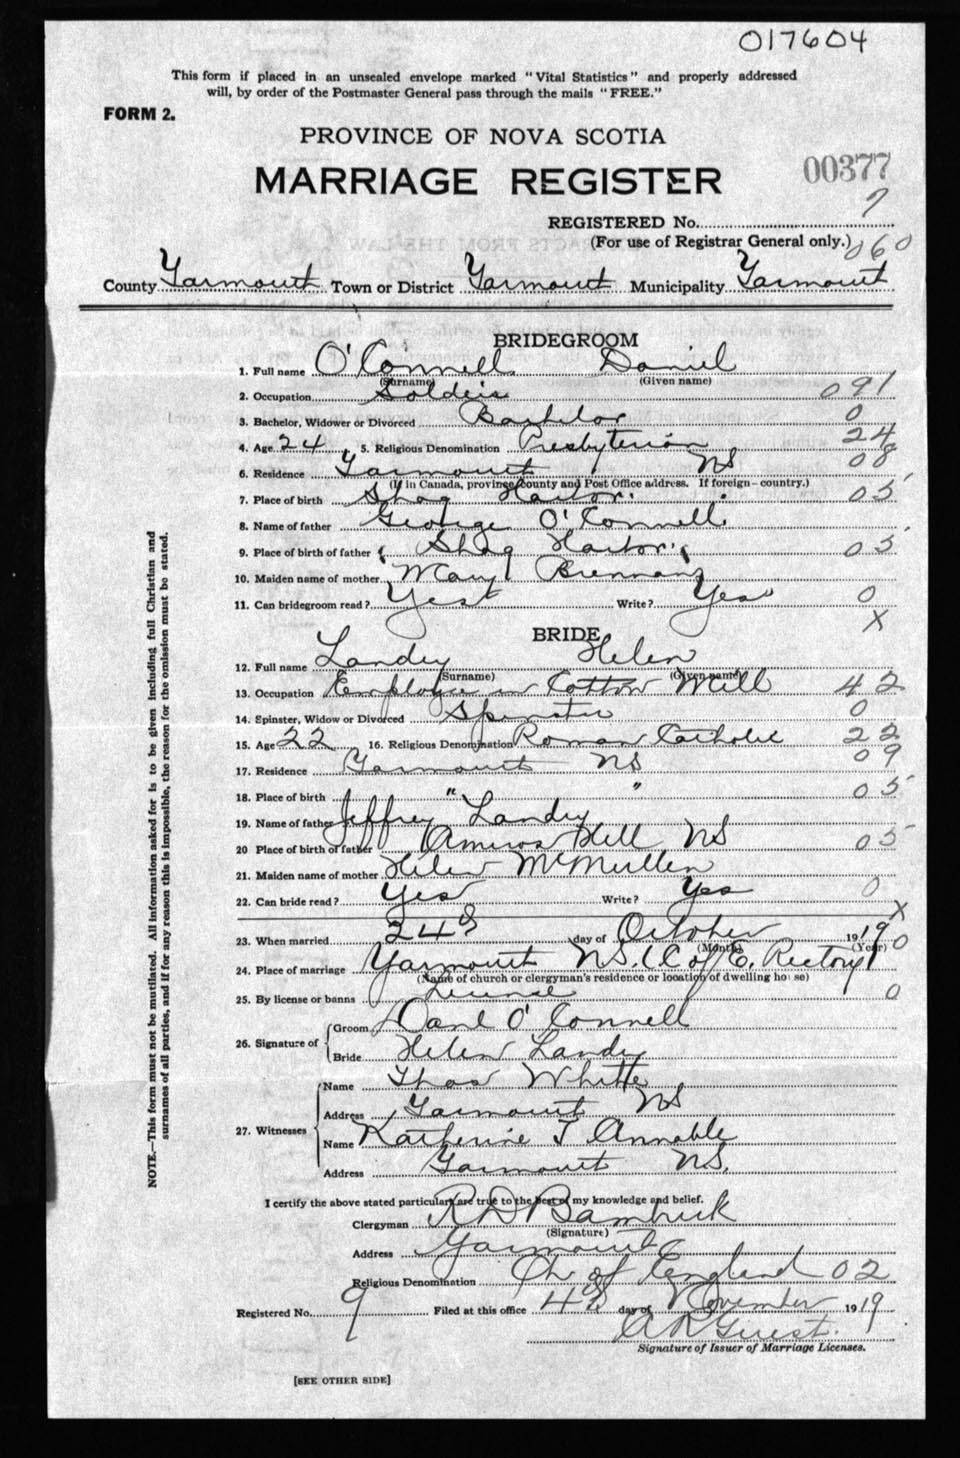 017604
This form if placed in an unsealed envelope marked "Vital Statistics" and properly addressed
will, by order of the Postmaster General pass through the mails "FREE."
FORM 2.
PROVINCE OF NOVA SCOTIA
MARRIAGE REGISTER
00377
REGISTERED No. 9
(For use of Registrar General only.) 060
County Yarmouth Town or District Yarmouth Municipality Yarmouth
BRIDEGROOM
1. Full name O'Connell Daniel
(Surname) (Given name)
2. Occupation Soldier 091
3. Bachelor, Widower or Divorced Bachelor 0
4. Age 24 5. Religious Denomination Presbyterian 24
6. Residence Yarmouth NS 08
(If in Canada, province, county and Post Office address. If foreign—country.)
7. Place of birth Shag Harbor. 05
8. Name of father George O'Connell
9. Place of birth of father Shag Harbor. 05
10. Maiden name of mother Mary Brennan
11. Can bridegroom read? Yes Write? Yes 0
X
BRIDE
12. Full name Landry Helen
(Surname) (Given name)
13. Occupation Employee in Cotton Mill 42
14. Spinster, Widow or Divorced Spinster 0
15. Age 22 16. Religious Denomination Roman Catholic 22
17. Residence Yarmouth NS 09
18. Place of birth " " 05
19. Name of father Jeffrey Landry
20 Place of birth of father Amiros Hill NS 05
21. Maiden name of mother Helen McMullen
22. Can bride read? Yes Write? Yes 0
X
23. When married 24th day of October 1919 0
(Month) (Year)
24. Place of marriage Yarmouth NS. (C of E. Rectory)
(Name of church or clergyman's residence or location of dwelling house)
25. By license or banns License 0
26. Signature of
Groom Danl O'Connell
Bride Helen Landry
27. Witnesses
Name Thos White
Address Yarmouth NS
Name Katherine T Annable
Address Yarmouth NS.
I certify the above stated particulars are true to the best of my knowledge and belief.
Clergyman R D Bambrick
(Signature)
Address Yarmouth
Religious Denomination Ch of England 02
Registered No. 9 Filed at this office 4th day of November 1919
A R Guest.
Signature of Issuer of Marriage Licenses.
[SEE OTHER SIDE]
NOTE.—This form must not be mutilated. All information asked for is to be given including full Christian and
surnames of all parties, and if for any reason this is impossible, the reason for the omission must be stated.